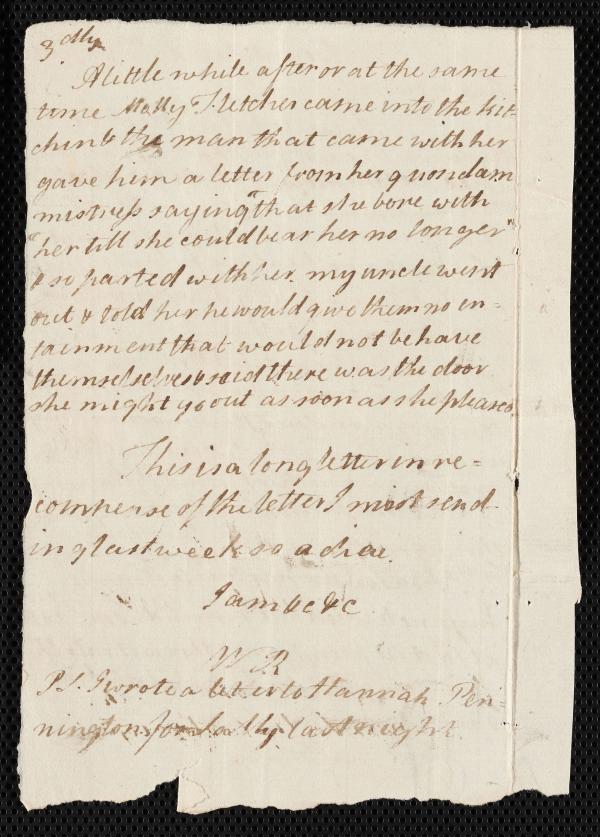 3dly
A little while after or at the same
time Molly Fletcher came into the kit-
chin & the man that came with her
gave him a letter from her quondam
mistress saying "that she bore with
"her till she could bear her no longer"
& so parted with her. my uncle went
out & told her he would give them no en-
tainment that would not behave
themselselves & said there was the door
she might go out as soon as she pleased.
This is a long letter in re=
compense of the letter I mist send
ing last week so adieu.
I am &c &c
WR
P.S. I wrote a letter to Hannah Pen-
nington for Sally last night.